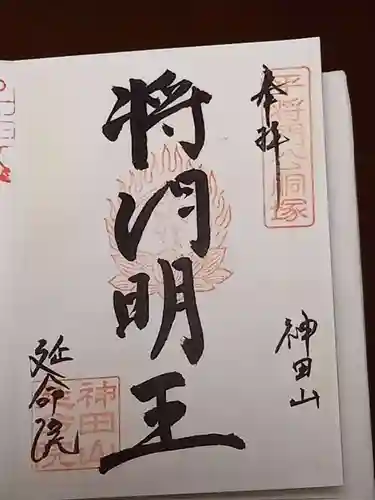 奉拝
平将門公胴塚
神田山
将门明王
延命院
神田山
延命院